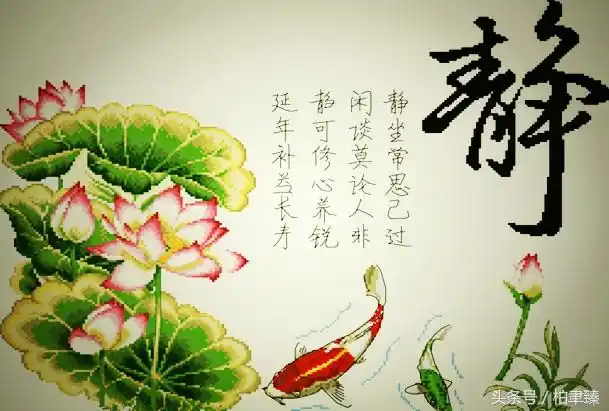 静
静坐常思己过
闲谈莫论人非
静可修心养锐
延年补益长寿
头条号 / 柏聿臻